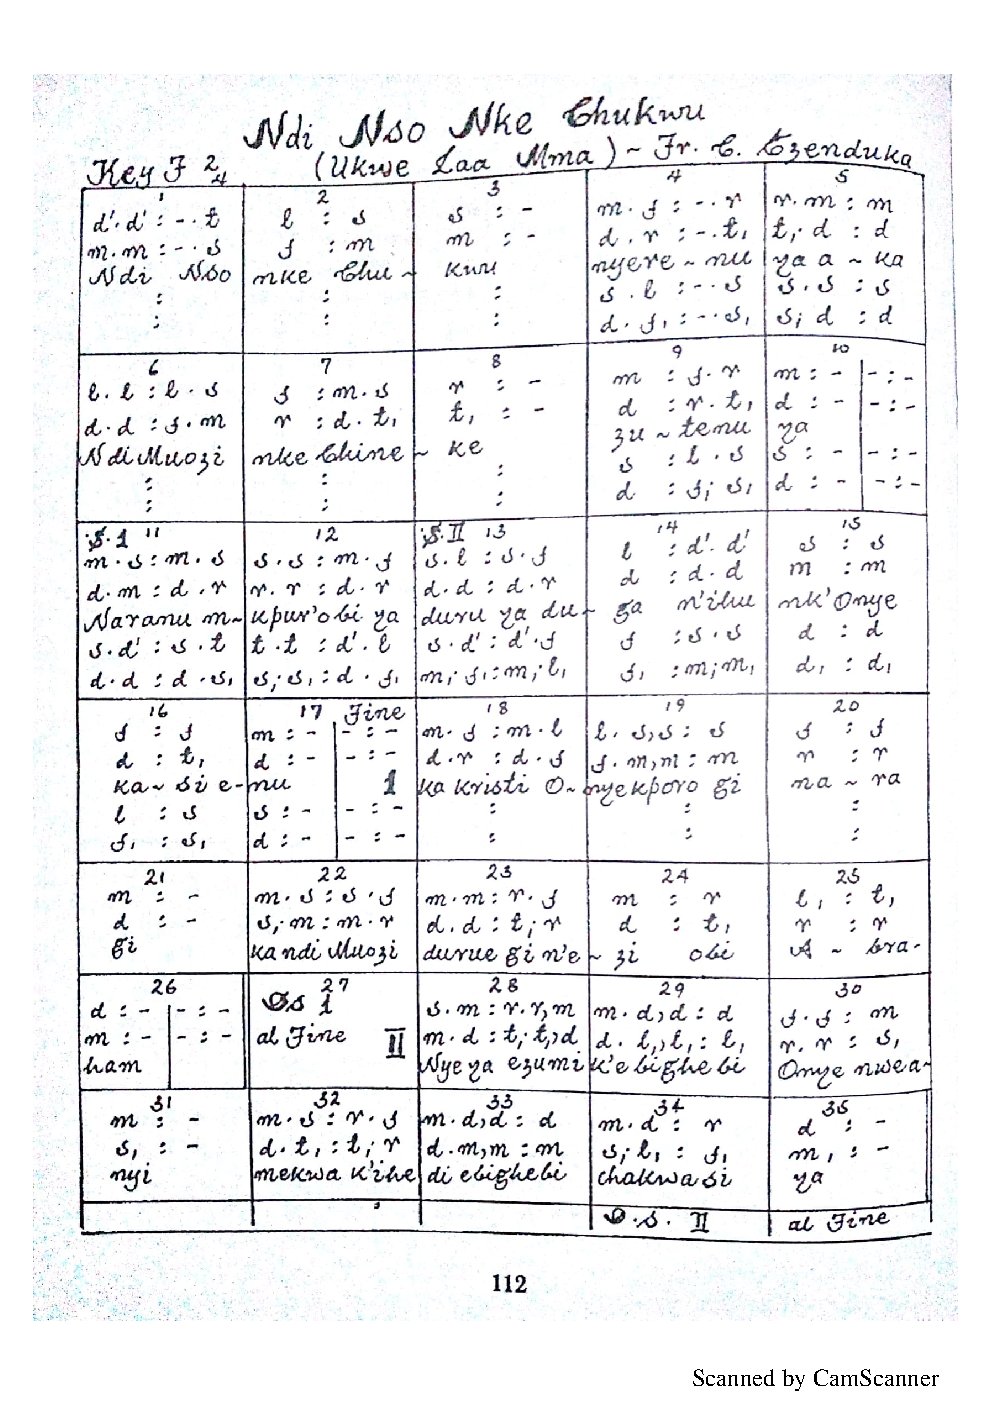 Ndi Nso Nke Chukwu
Key F 2/4 (Ukwe Laa Mma) ~ Fr. C. Ezenduka
1 2 3 4 5
d'.d' : -. t | l : s | s : - | m. f : -. r | r. m : m
m.m : -. s | f : m | m : - | d . r : -. t, | t,. d : d
Ndi Nso | nke Chu ~ | kwu | nyere ~ nu | ya a ~ ka
: | : | : | s . l : -. s | s . s : s
: | : | : | d . f, : -. s, | s, d : d
6 7 8 9 10
l. l : l . s | f : m. s | r : - | m : f. r | m : - | - : -
d. d : f. m | r : d. t, | t, : - | d : r. t, | d : - | - : -
Ndi Muozi | nke Chine ~ | ke | zu ~ tenu | ya
: | : | : | s : l . s | s : - | - : -
: | : | : | d : f,. s, | d : - | - : -
S. 1 11 12 S. II 13 14 15
m. s : m. s | s. s : m. f | s. l : s. f | l : d'. d' | s : s
d. m : d. r | r. r : d. r | d. d : d. r | d : d. d | m : m
Naranu m~ | kpur'obi ya | duru ya du- | ga n'ihu | nk'Onye
s. d' : s. t | t. t : d'. l | s. d' : d'. f | f : s. s | d : d
d. d : d. s, | s,. s, : d. f, | m,. f, : m,. l, | f, : m,. m, | d, : d,
16 17 Fine 18 19 20
f : f | m : - | - : - | m. f : m. l | l. s,s : s | f : f
d : t, | d : - | - : - | d. r : d. f | f. m,m : m | r : r
ka~ si e- | nu 1 | ka kristi O~ | nyekporo gi | na ~ ra
l : s | s : - | - : - | : | : | :
f, : s, | d : - | - : - | : | : | :
21 22 23 24 25
m : - | m. s : s. f | m. m : r. f | m : r | l, : t,
d : - | s,. m : m. r | d. d : t,. r | d : t, | r : r
gi | ka ndi Muozi | durue gi n'e ~ | zi obi | A ~ bra-
26 27 28 29 30
d : - | - : - | D.S 1 | s. m : r. r,m | m. d,d : d | f. f : m
m : - | - : - | al Fine II | m. d : t,. t,,d | d. l,,l, : l, | r. r : s,
ham | Nye ya ezumi | k'e bighebi | Onye nwea-
31 32 33 34 35
m : - | m. s : r. f | m. d,d : d | m. d : r | d : -
s, : - | d. t, : t,. r | d. m,m : m | s,. l, : f, | m, : -
nyi | mekwa k'ihe | di ebighebi | chakwasi | ya
D. S. II | al Fine
112
Scanned by CamScanner